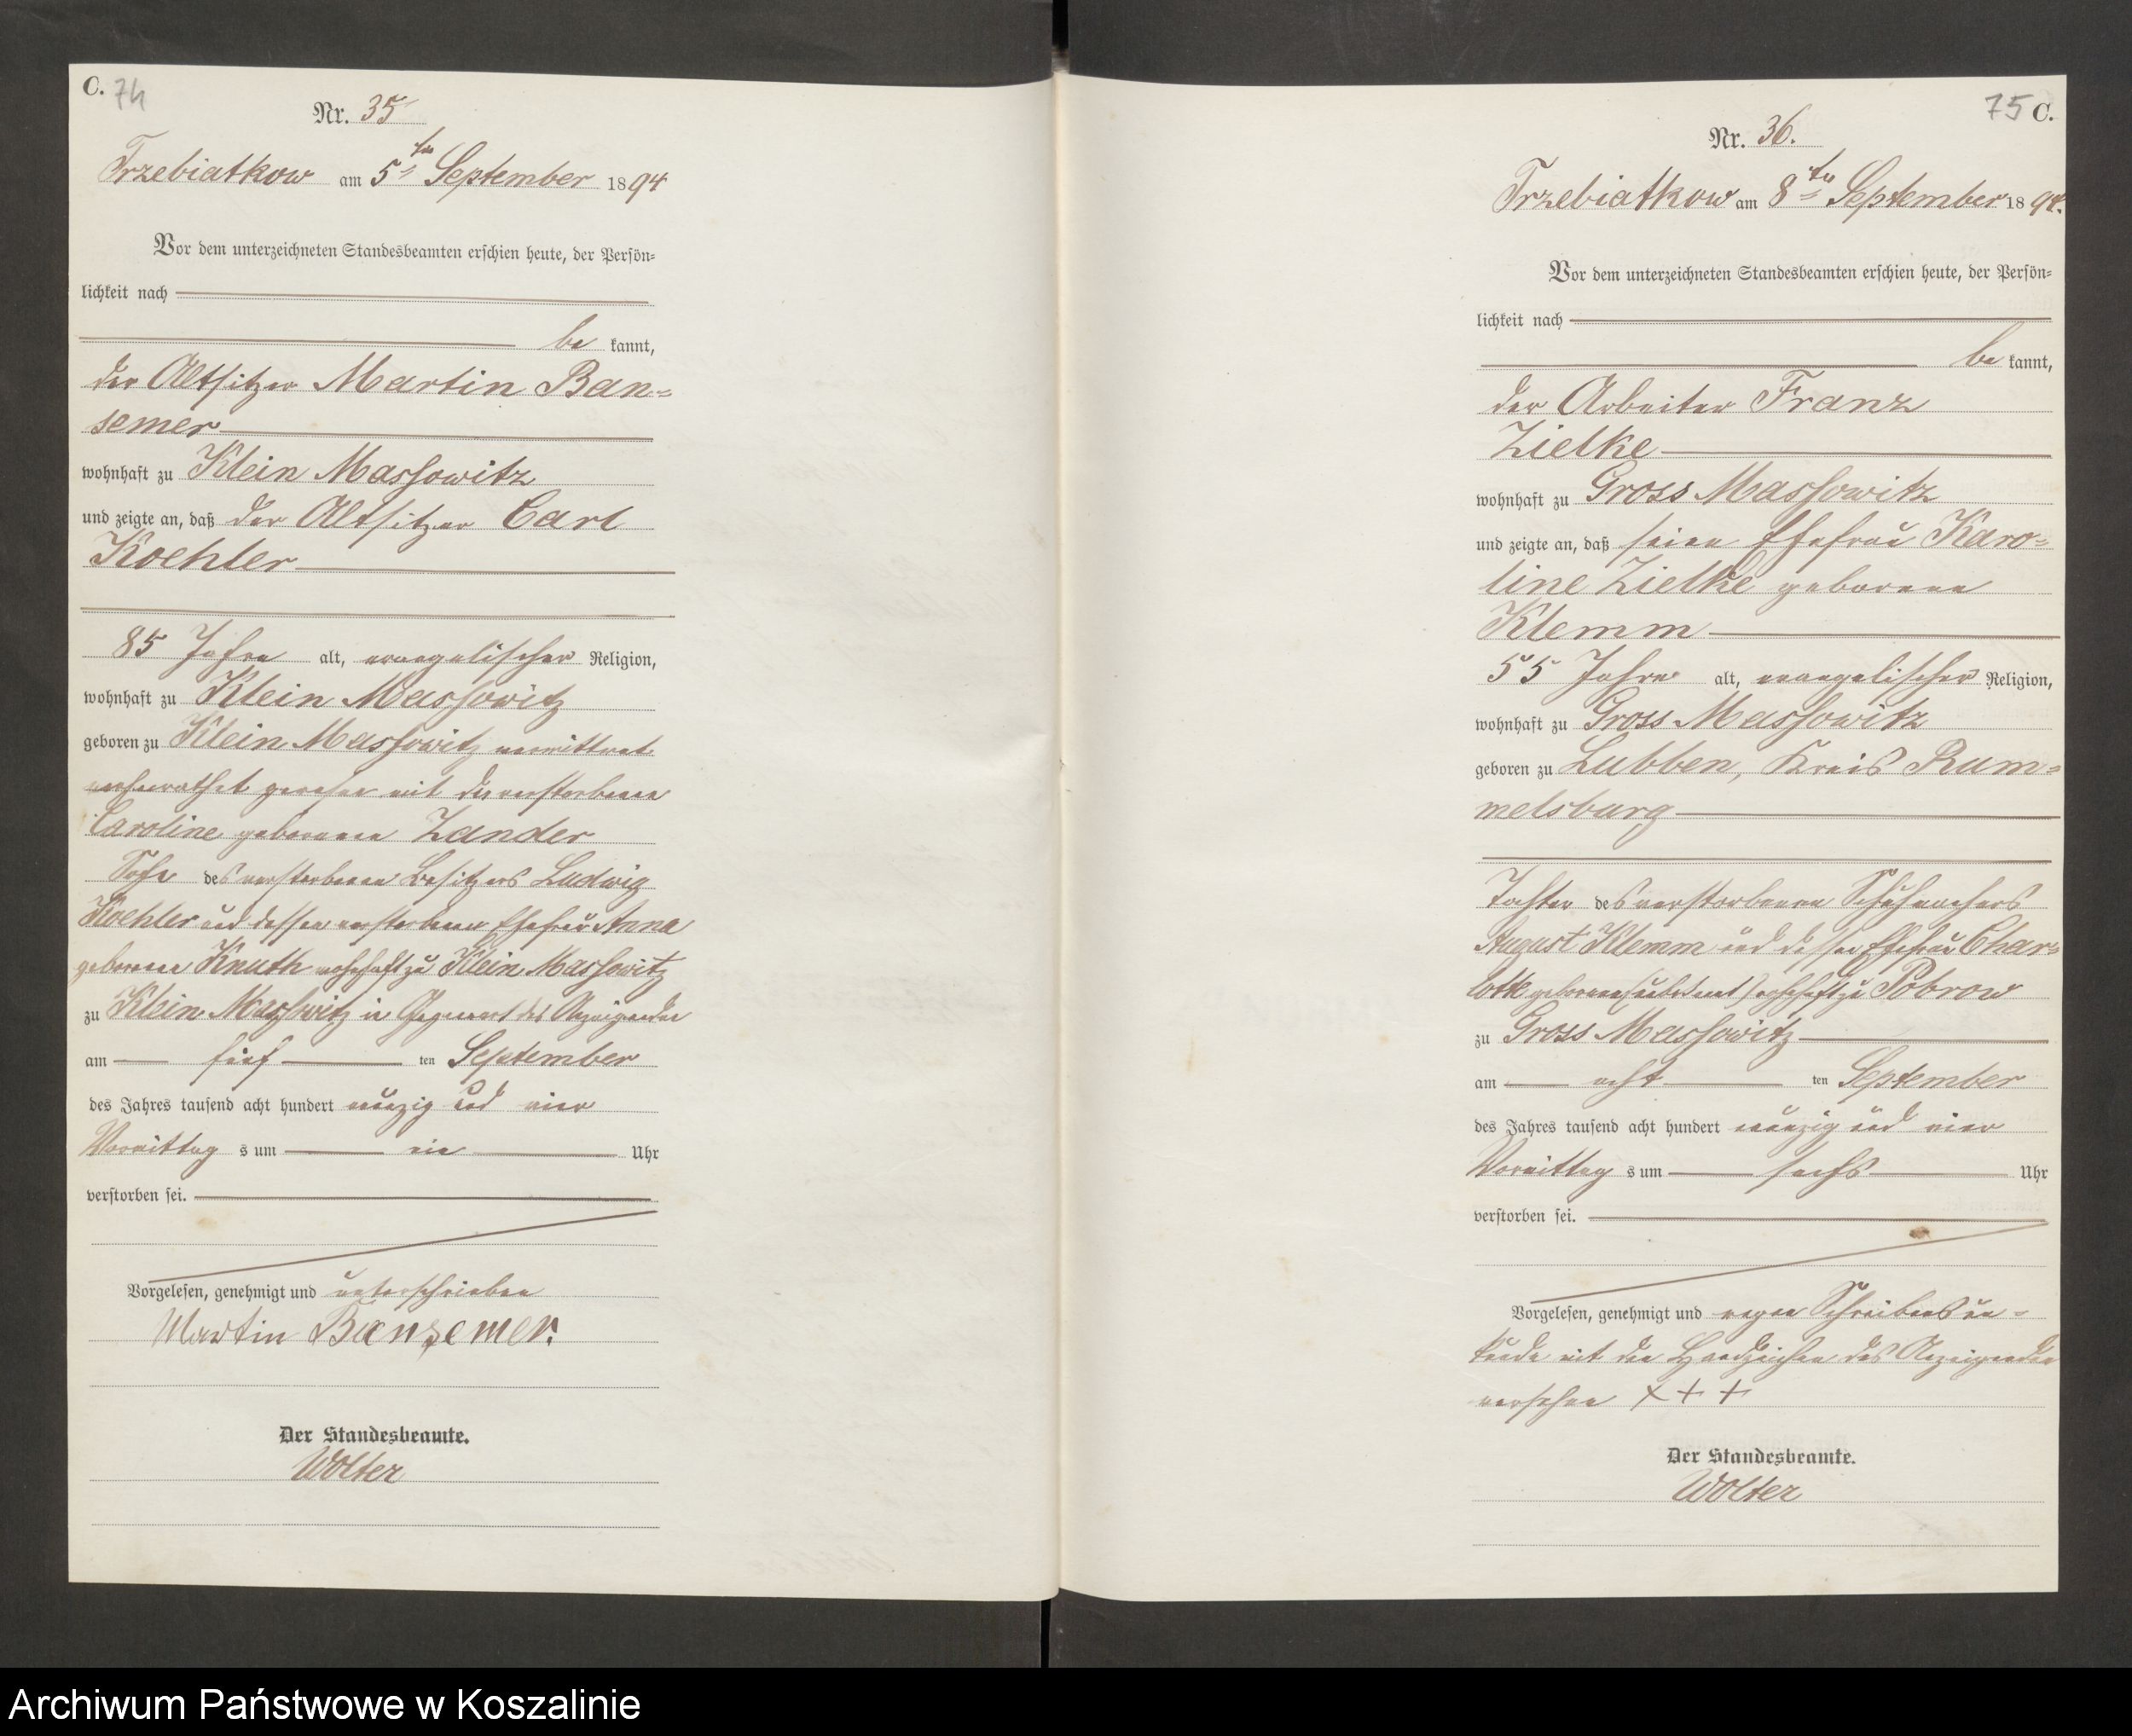 C. 74
Nr. 35
Trzebiatkow am 5ten September 1894
Vor dem unterzeichneten Standesbeamten erschien heute, der Persön=
lichkeit nach
be kannt,
der Altsitzer Martin Ban=
semer
wohnhaft zu Klein Massowitz
und zeigte an, daß der Altsitzer Carl
Koehler
85 Jahre alt, evangelischer Religion,
wohnhaft zu Klein Massowitz
geboren zu Klein Massowitz verwittwet
verheirathet gewesen mit der verstorbenen
Caroline geborenen Zander
Sohn des verstorbenen Besitzers Ludwig
Koehler und dessen verstorbenen Ehefrau Anna
geborenen Knuth wohnhaft zu Klein Massowitz
zu Klein Massowitz in Gegenwart des Anzeigenden
am fünf ten September
des Jahres tausend acht hundert neunzig und vier
Vormittag s um ein Uhr
verstorben sei.
Vorgelesen, genehmigt und unterschrieben
Martin Bansemer.
Der Standesbeamte.
Wolter
75 C.
Nr. 36.
Trzebiatkow am 8ten September 1894.
Vor dem unterzeichneten Standesbeamten erschien heute, der Persön=
lichkeit nach
be kannt,
der Arbeiter Franz
Zielke
wohnhaft zu Gross Massowitz
und zeigte an, daß seine Ehefrau Karo=
line Zielke geborene
Klemm
55 Jahre alt, evangelischer Religion,
wohnhaft zu Gross Massowitz
geboren zu Lubben, Kreis Rum=
melsburg
Tochter des verstorbenen Schuhmachers
August Klemm und dessen Ehefrau Char=
lotte geborene wohnhaft zu Pobrow
zu Gross Massowitz
am acht ten September
des Jahres tausend acht hundert neunzig und vier
Vormittag s um sechs Uhr
verstorben sei.
Vorgelesen, genehmigt und wegen Schreibensun=
kunde mit den Handzeichen des Anzeigenden
versehen + + +
Der Standesbeamte.
Wolter
Archiwum Państwowe w Koszalinie